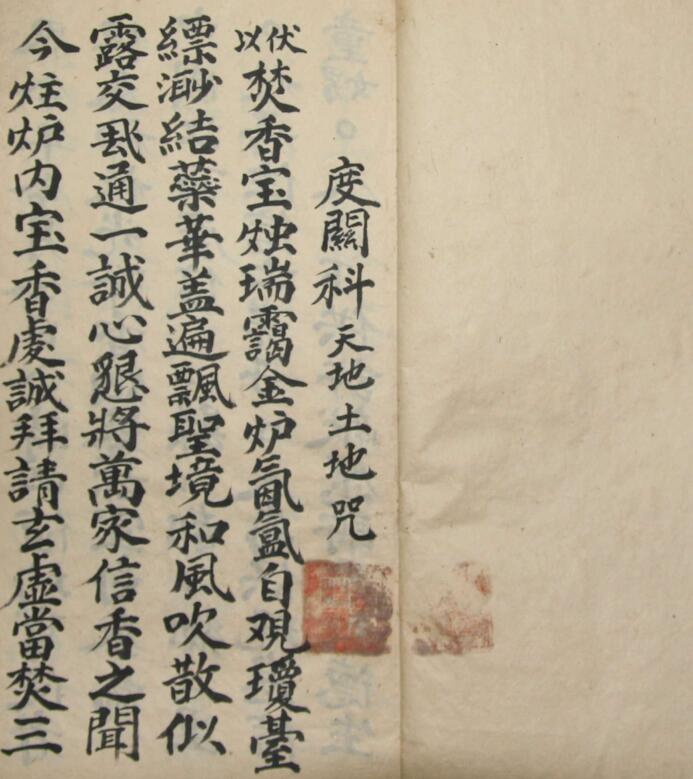 度關科天地土地咒
伏以焚香宝烛瑞靄金炉氤氲自观瓊臺
縹渺結蘂華盖遍飄聖境和風吹散似
露交風通一誠心恳將萬家信香之聞
今炷炉内宝香虔誠拜請玄虛當焚三